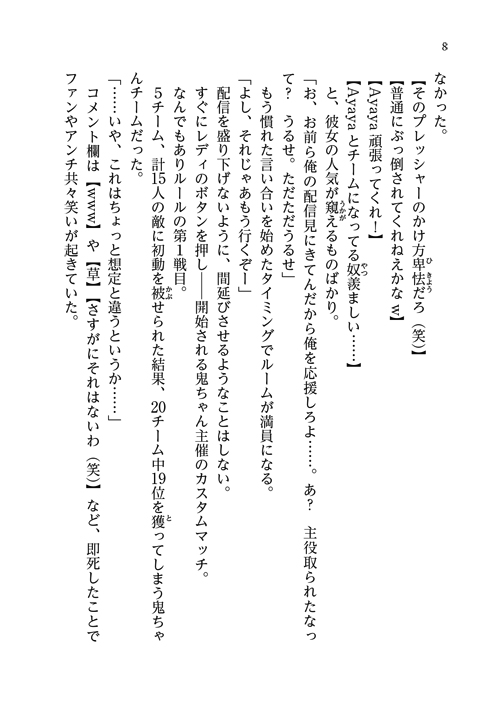 8
なかった。
【そのプレッシャーのかけ方卑怯だろ（笑）】
【普通にぶっ倒されてくれねえかなｗ】
【Ayaya頑張ってくれ！】
【Ayayaとチームになってる奴羨ましい……】
と、彼女の人気が窺えるものばかり。
「お、お前ら俺の配信見にきてんだから俺を応援しろよ……。あ？　主役取られたなっ
て？　うるせ。ただただうるせ」
もう慣れた言い合いを始めたタイミングでルームが満員になる。
「よし、それじゃあもう行くぞー」
配信を盛り下げないように、間延びさせるようなことはしない。
すぐにレディのボタンを押し——開始される鬼ちゃん主催のカスタムマッチ。
なんでもありルールの第1戦目。
5チーム、計15人の敵に初動を被せられた結果、20チーム中19位を獲ってしまう鬼ちゃ
んチームだった。
「……いや、これはちょっと想定と違うというか……」
コメント欄は【ｗｗｗ】や【草】【さすがにそれはないわ（笑）】など、即死したことで
ファンやアンチ共々笑いが起きていた。